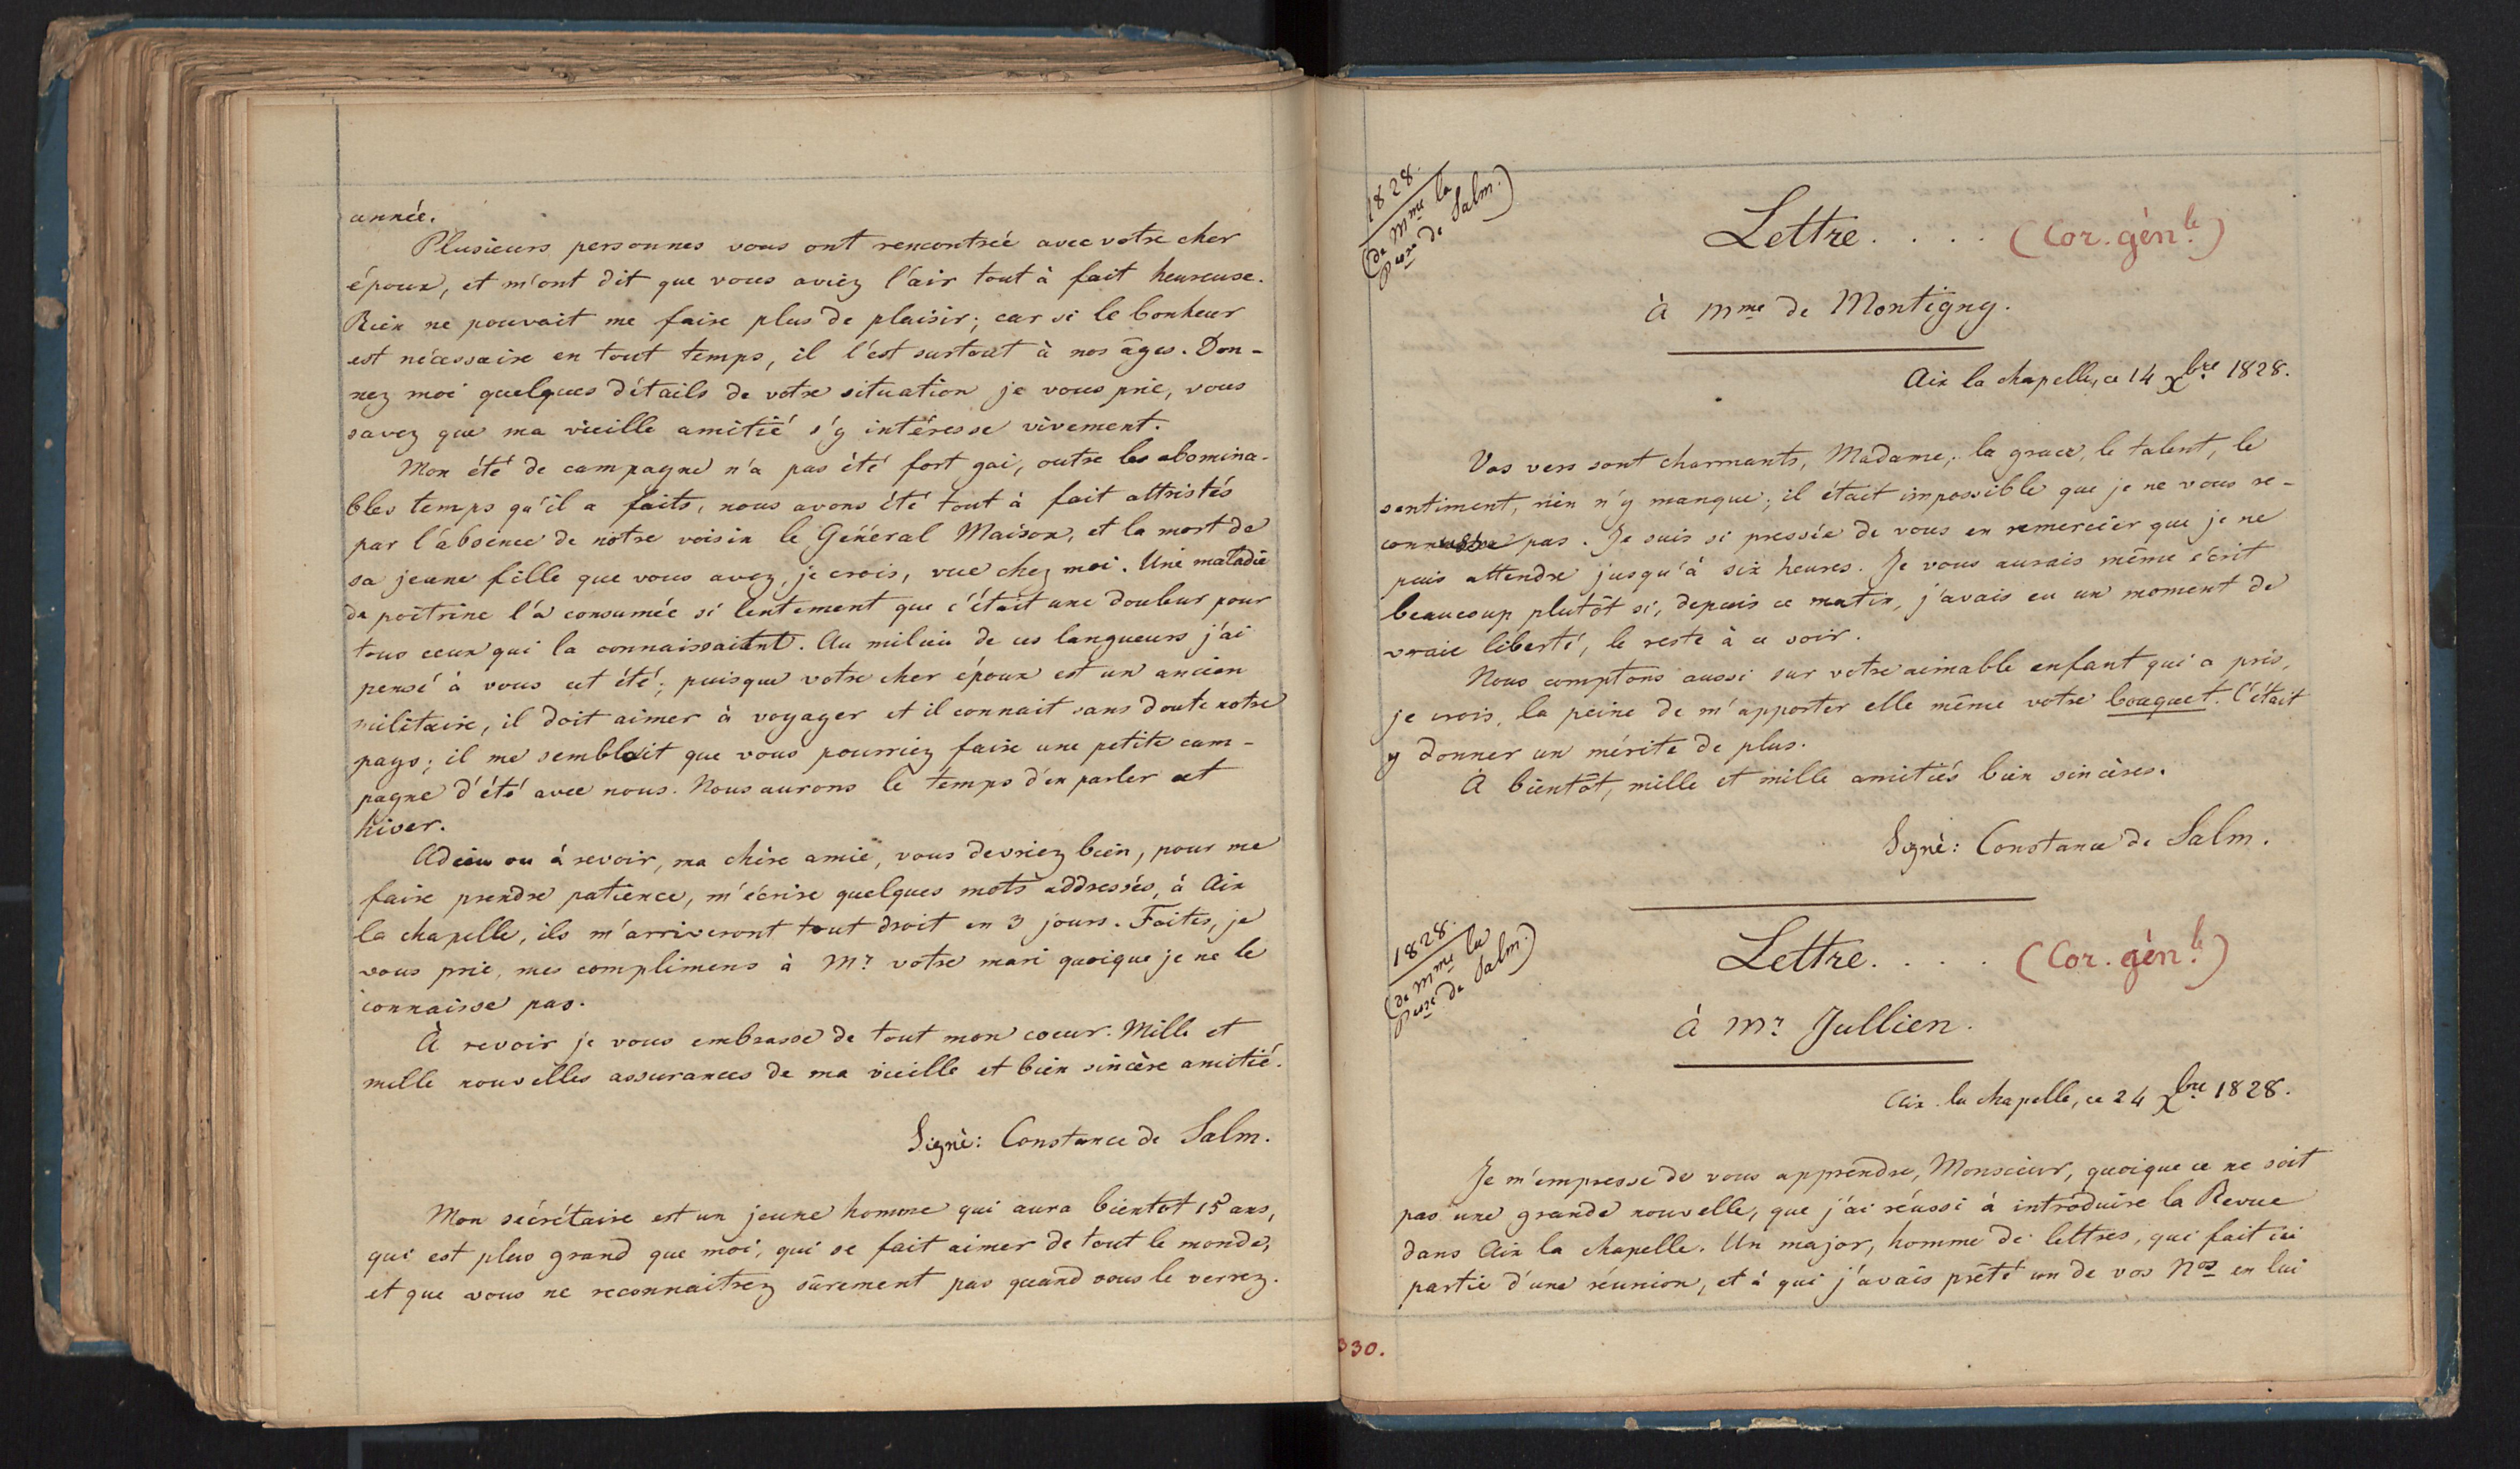 année.
Plusieurs personnes vous ont rencontrée avec votre cher
époux, et m'ont dit que vous aviez l'air tout à fait heureuse.
Rien ne pouvait me faire plus de plaisir; car si le bonheur
est nécessaire en tout temps, il l'est surtout à nos âges. Don-
nez moi quelques détails de votre situation je vous prie, vous
savez que ma vieille amitié s'y intéresse vivement.
Mon été de campagne n'a pas été fort gai, outre les abomina-
bles temps qu'il a faits, nous avons été tout à fait attristés
par l'absence de notre voisin le Général Maison, et la mort de
sa jeune fille que vous avez, je crois, vue chez moi. Une maladie
de poitrine l'a consumée si lentement que c'était une douleur pour
tous ceux qui la connaissaient. Au milieu de ces langueurs j'ai
pensé à vous cet été; puisque votre cher époux est un ancien
militaire, il doit aimer à voyager et il connait sans doute notre
pays; il me semblait que vous pourriez faire une petite cam-
pagne d'été avec nous. Nous aurons le temps d'en parler cet
hiver.
Adieu ou à revoir, ma chère amie, vous devriez bien, pour me
faire prendre patience, m'écrire quelques mots addressés, à Aix
la chapelle, ils m'arriveront tout droit en 3 jours. Faites, je
vous prie, mes complimens à Mr votre mari quoique je ne le
connaisse pas.
À revoir je vous embrasse de tout mon coeur. Mille et
mille nouvelles assurances de ma vieille et bien sincère amitié.
Signé: Constance de Salm.
Mon sécrétaire est un jeune homme qui aura bientot 15 ans,
qui est plus grand que moi, qui se fait aimer de tout le monde,
et que vous ne reconnaitrez sûrement pas quand vous le verrez.
1828.
(de Mme la
Pcsse de Salm.)
Lettre. . . . (Cor. génle.)
à Mme de Montigny.
Aix la chapelle, ce 14 Xbre 1828.
Vos vers sont charmants, Madame, la grace, le talent, le
sentiment, rien n'y manque; il était impossible que je ne vous re-
connusse pas. Je suis si pressée de vous en remercier que je ne
puis attendre jusqu'à six heures. Je vous aurais même écrit
beaucoup plutôt si, depuis ce matin, j'avais eu un moment de
vraie liberté, le reste à ce soir.
Nous comptons aussi sur votre aimable enfant qui a pris,
je crois, la peine de m'apporter elle même votre bouquet. C'était
y donner un mérite de plus.
À bientôt, mille et mille amitiés bien sincères.
Signé: Constance de Salm.
1828.
(de Mme la
Pcsse de Salm.)
Lettre. . . . (Cor. génle.)
à Mr Jullien.
Aix la chapelle, ce 24 Xbre 1828.
Je m'empresse de vous apprendre, Monsieur, quoique ce ne soit
pas une grande nouvelle, que j'ai réussi à introduire la Revue
dans Aix la chapelle. Un major, homme de lettres, qui fait ici
partie d'une réunion, et à qui j'avais prêté un de vos Nos en lui
330.